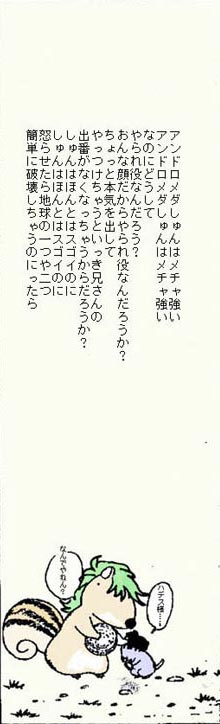 アンドロメダしゅんはメチャ強い
アンドロメダしゅんはメチャ強い
なのにどうして
やられ役なんだろう？
おんな顔だからやられ役なんだろうか？
ちょっと本気を出して
やっつけちゃうといっき兄さんの
出番がなくなっちゃうからだろうか？
しゅんはほんとはスゴイのに
しゅんはほんとはスゴイのに
怒らせたら地球の一つや二つ
簡単に破壊しちゃうのにったら
ハデス様……
なんでやねん？